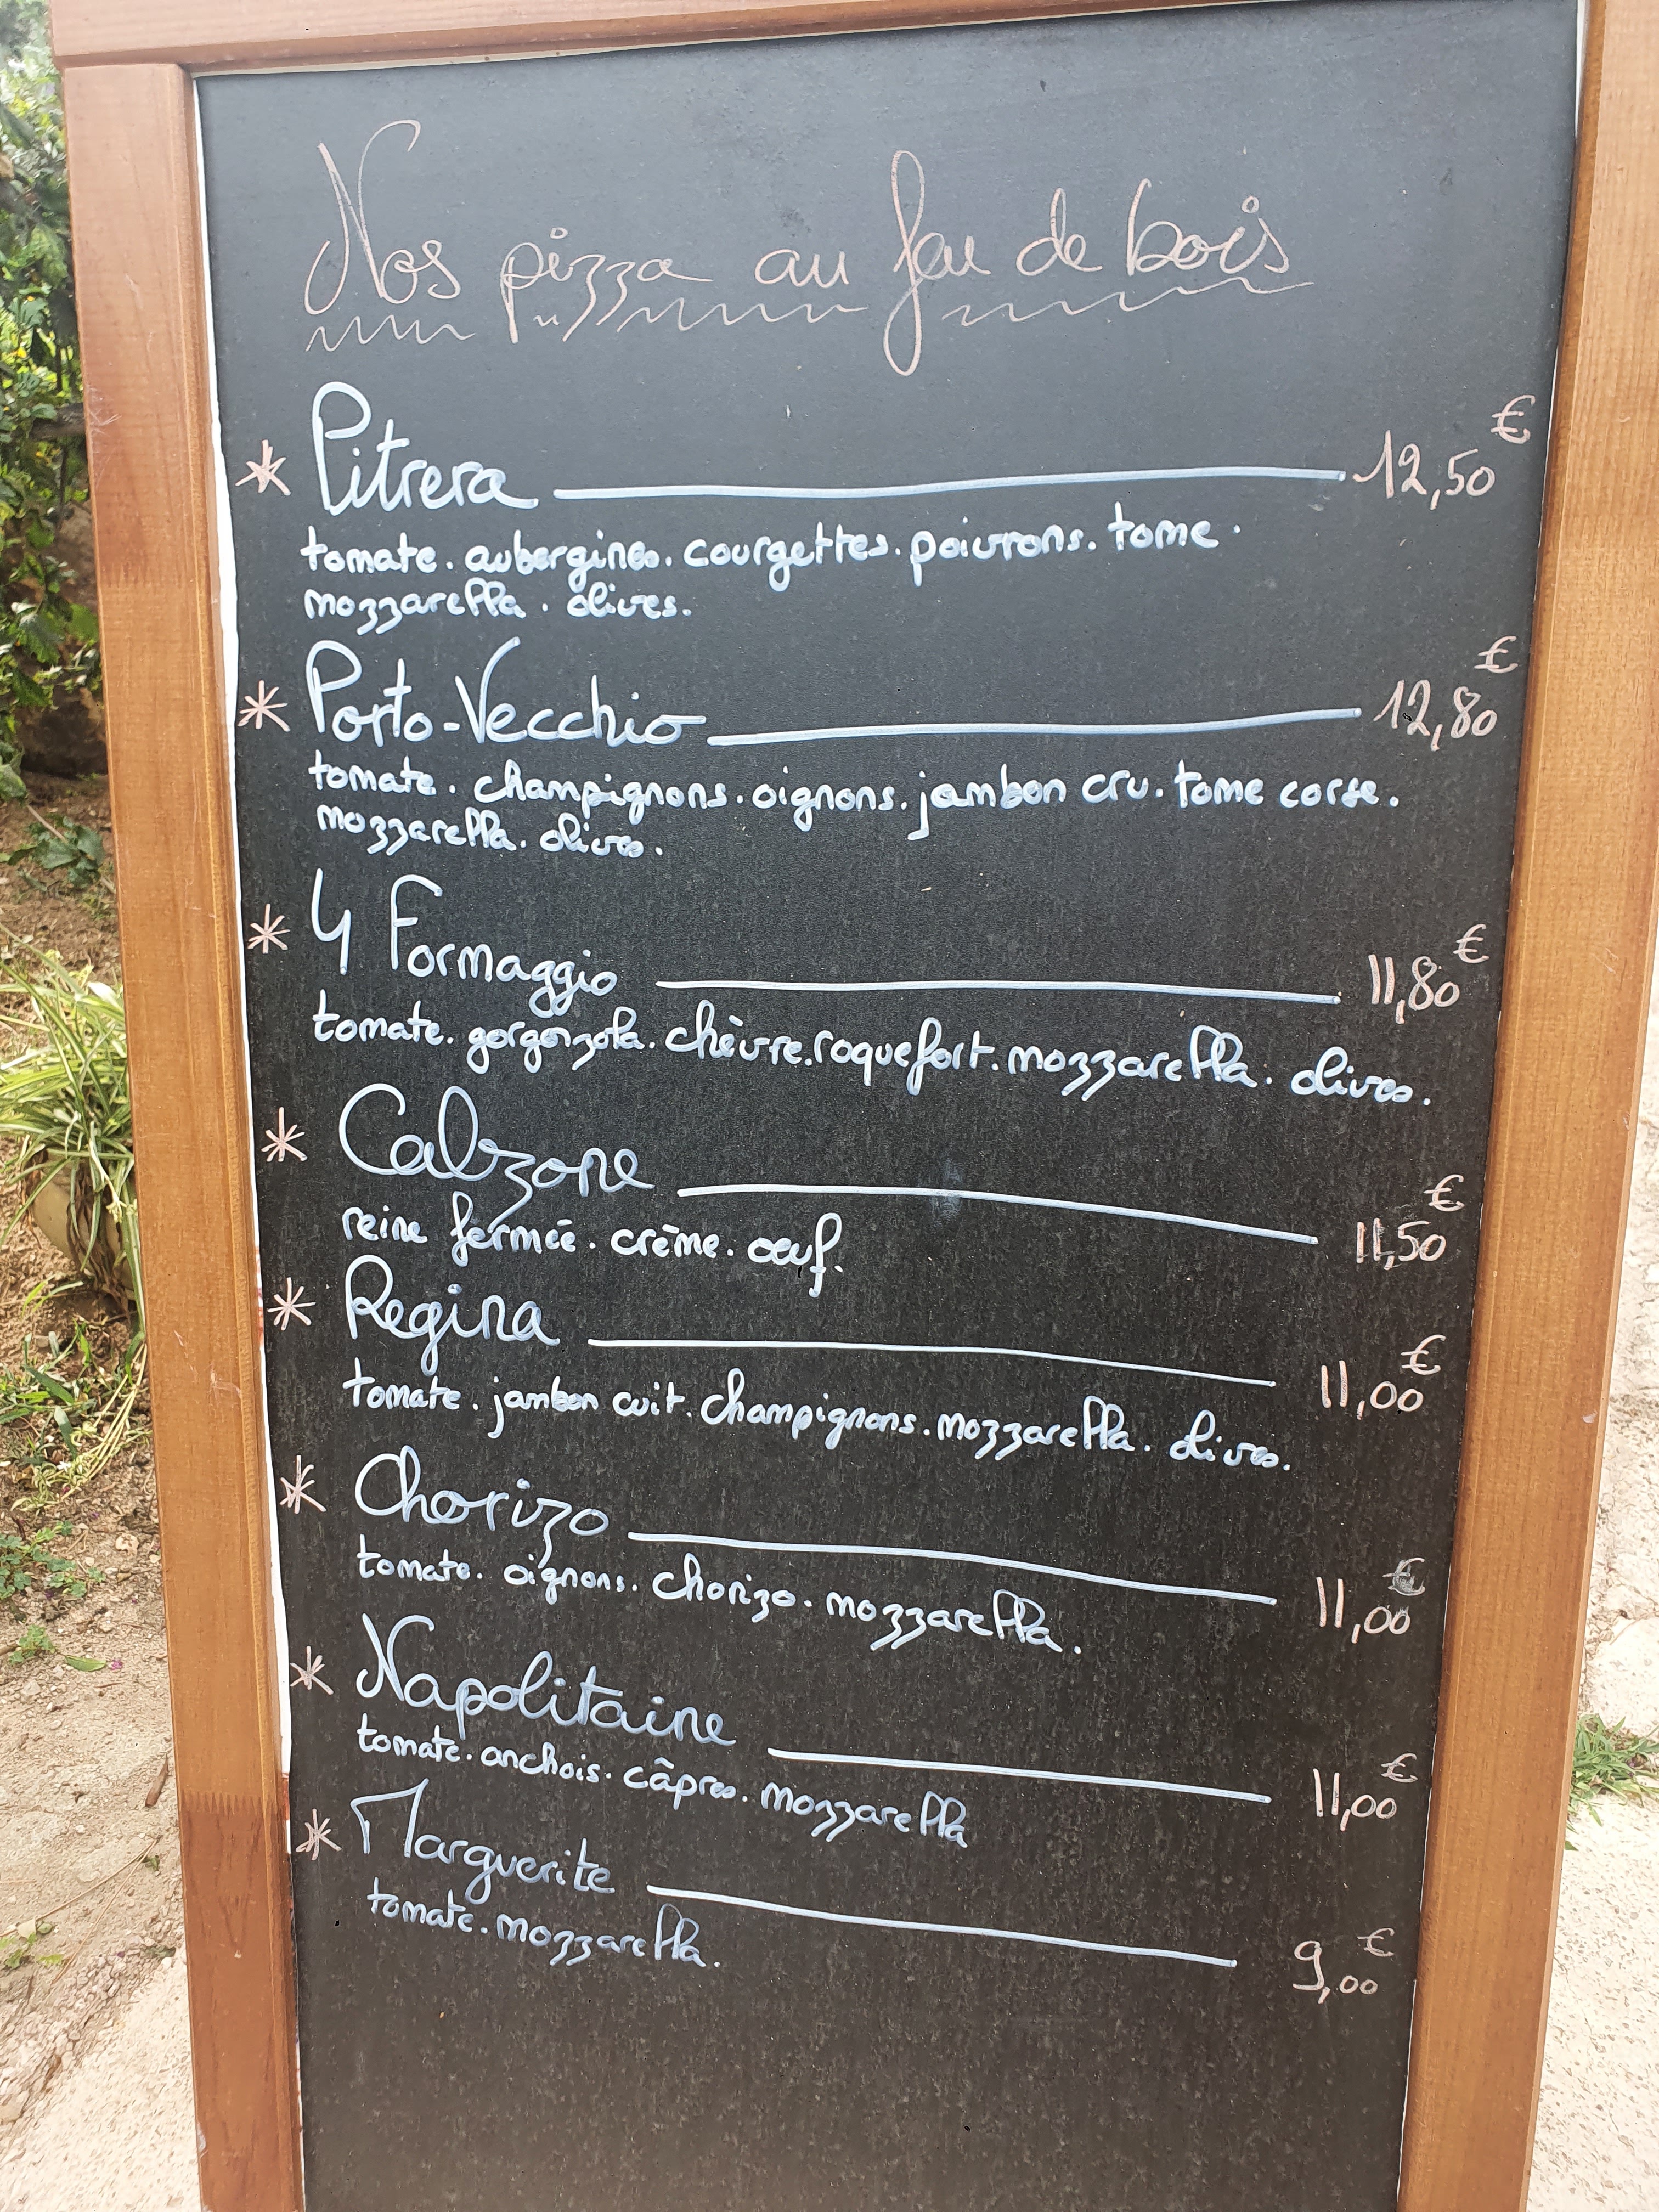 Nos pizza au feu de bois
* Pitrera 12,50 €
tomate. aubergines. courgettes. poivrons. tome.
mozzarella. olives.
* Porto-Vecchio 12,80 €
tomate. champignons. oignons. jambon cru. tome corse.
mozzarella. olives.
* 4 Formaggio 11,80 €
tomate. gorgonzola. chèvre. roquefort. mozzarella. olives.
* Calzone 11,50 €
reine fermée. crème. oeuf.
* Regina 11,00 €
tomate. jambon cuit. champignons. mozzarella. olives.
* Chorizo 11,00 €
tomate. oignons. chorizo. mozzarella.
* Napolitaine 11,00 €
tomate. anchois. câpres. mozzarella
* Marguerite 9,00 €
tomate. mozzarella.